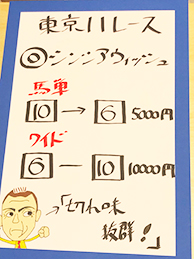 東京11レース
◎シンシアウィッシュ
馬単
10→6 5000円
ワイド
6―10 10000円
→「切れ味
抜群!」